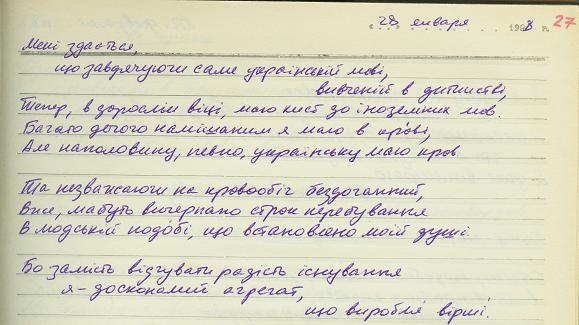 28 января 1998 г. 27
Мені здається,
що завдячуючи саме українській мові,
вивченій в дитинстві,
Тепер, в дорослім віці, маю хист до іноземних мов.
Багато дечого намішаним я маю в крóві,
Але наполовину, певно, українську маю кров.
Та незважаючи на кровообіг бездоганний,
Вже, мабуть вичерпано строк перебування
В людській подóбі, що встановлено моїй душі.
Бо замість відчувати радість існування
я - досконалий агрегат,
що виробля вірші.